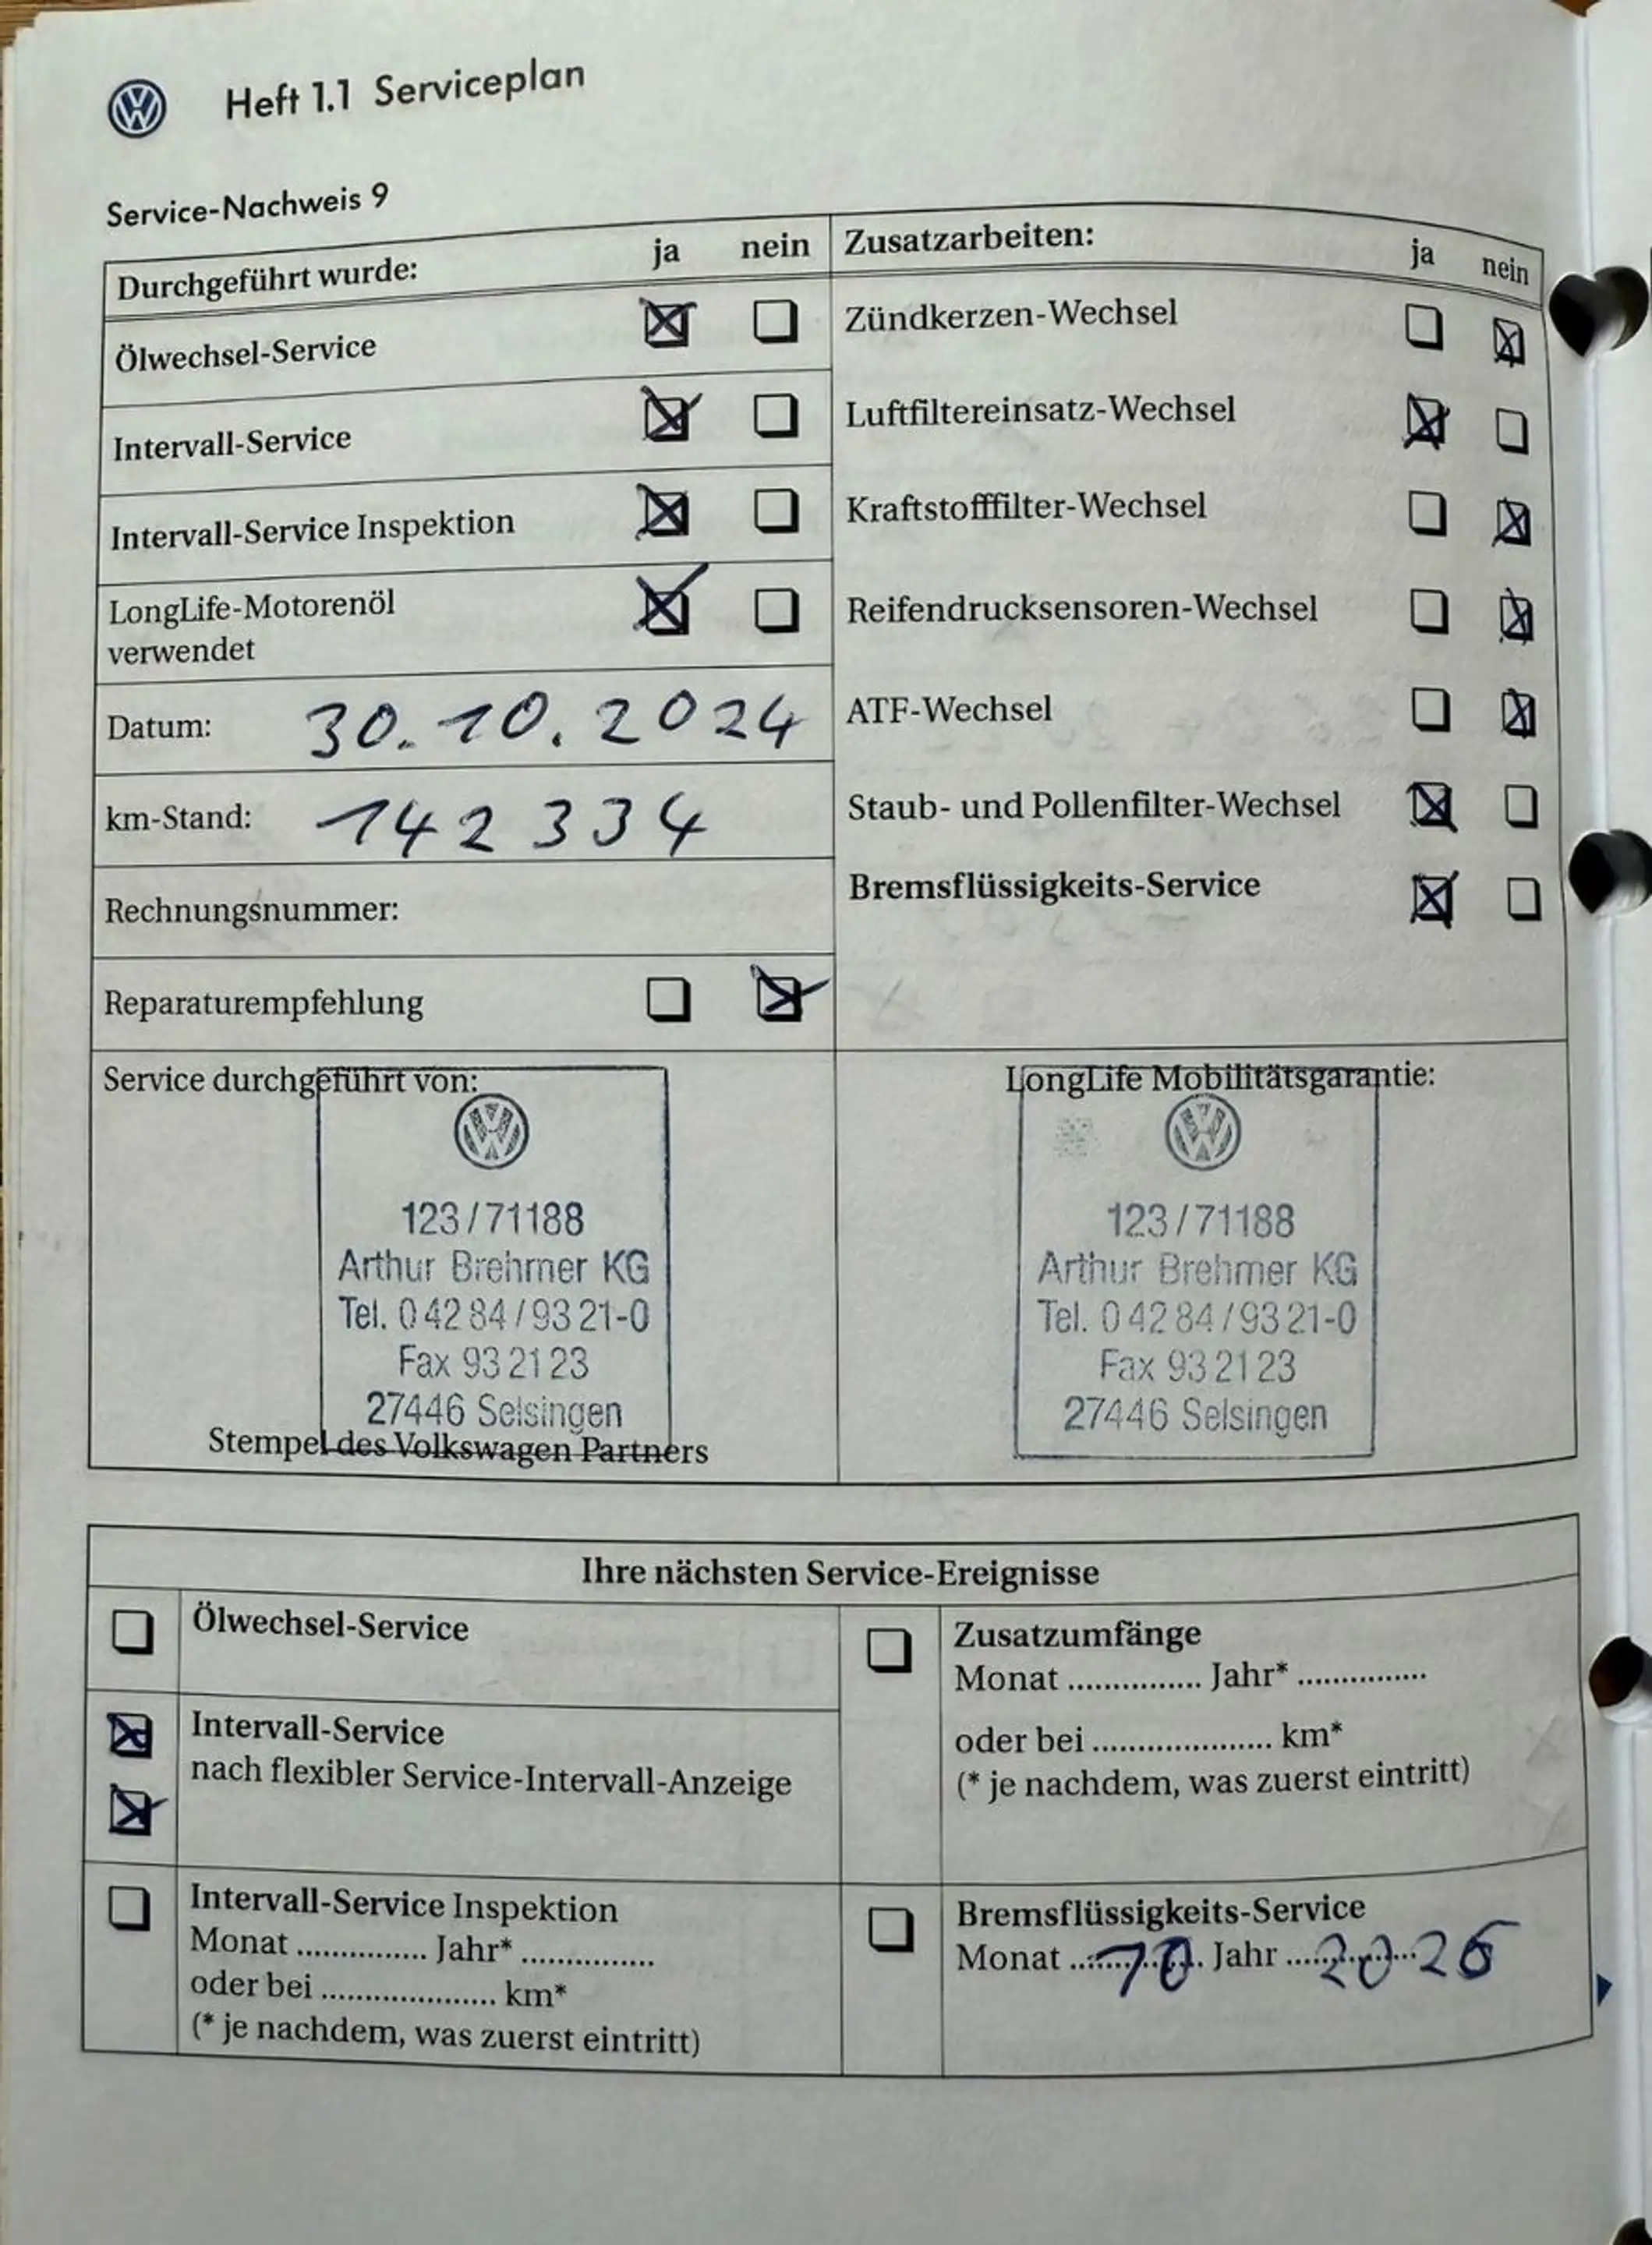 Heft 1.1 Serviceplan
Service-Nachweis 9
Durchgeführt wurde: ja nein
Ölwechsel-Service
Intervall-Service
Intervall-Service Inspektion
LongLife-Motorenöl
verwendet
Datum: 30.10.2024
km-Stand: 142 334
Rechnungsnummer:
Reparaturempfehlung
Zusatzarbeiten: ja nein
Zündkerzen-Wechsel
Luftfiltereinsatz-Wechsel
Kraftstofffilter-Wechsel
Reifendrucksensoren-Wechsel
ATF-Wechsel
Staub- und Pollenfilter-Wechsel
Bremsflüssigkeits-Service
Service durchgeführt von:
123/71188
Arthur Brehmer KG
Tel. 0 42 84 / 93 21-0
Fax 93 21 23
27446 Selsingen
Stempel des Volkswagen Partners
LongLife Mobilitätsgarantie:
123/71188
Arthur Brehmer KG
Tel. 0 42 84 / 93 21-0
Fax 93 21 23
27446 Selsingen
Ihre nächsten Service-Ereignisse
Ölwechsel-Service
Intervall-Service
nach flexibler Service-Intervall-Anzeige
Intervall-Service Inspektion
Monat ............... Jahr* ...............
oder bei .................... km*
(* je nachdem, was zuerst eintritt)
Zusatzumfänge
Monat ............... Jahr* ...............
oder bei .................... km*
(* je nachdem, was zuerst eintritt)
Bremsflüssigkeits-Service
Monat 10 Jahr 2026